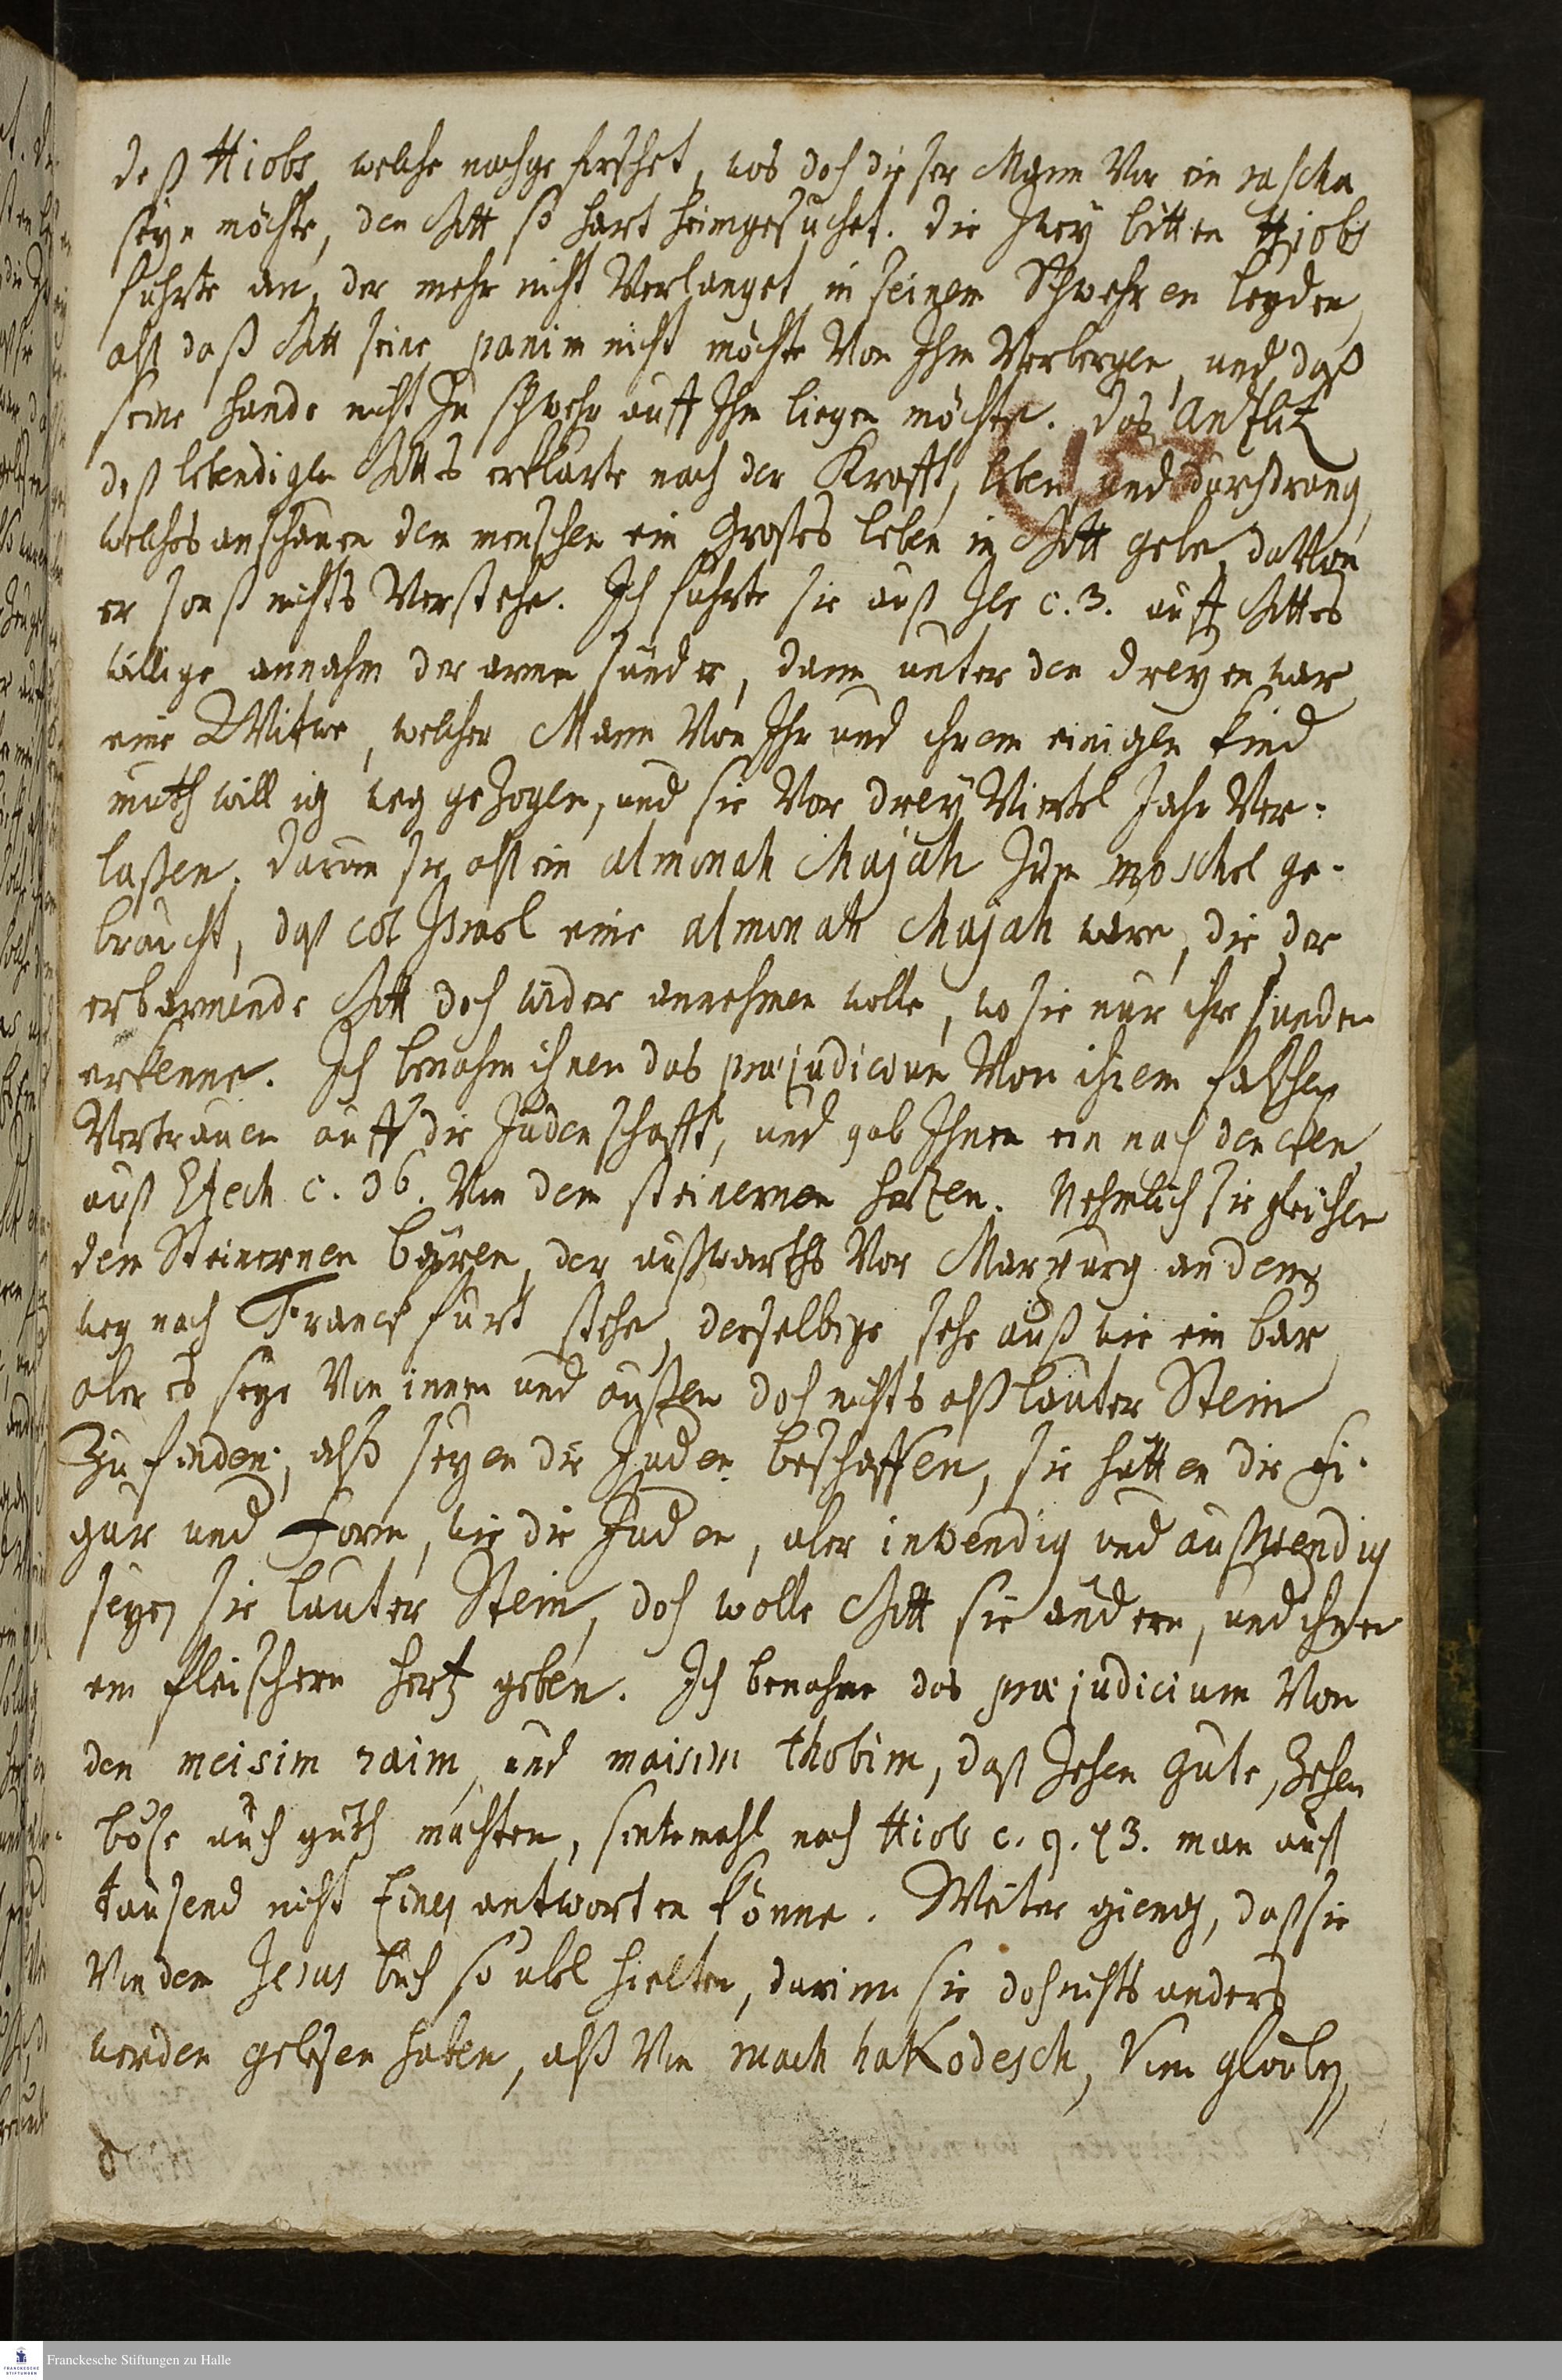 deß Hiobs, welche nachgeforschet, was doch dieser Mann Vor ein rascha
seyn möchte, den Gott so hart heimgesuchet. Die Zwey bitten Hiobs
führte an, der mehr nicht Verlanget in seinem Schwehren leyden,
alß daß Gott seine panim nicht möchte Von Ihm Verbergen, und daß
seine hande nicht Zu schwehr auff Ihm liegen möchte. Das Antzlitz
deß lebendigen Gottes erklärte nach der Krafft, leben, und durchdrang,
welches anschauen dem menschen ein Großes leben in Gott gebe, daVon
er sonst nichts Verstehe. Ich führte sie auß Jer c. 3. auff Gottes
willige annahm der armen sünder, dann unter den dreyen war
eine Witwe, welcher Mann Von Ihr und ihrem einigen kind
muthwillig weg gezogen, und sie Vor drey Viertel Jahr Ver-
laßen. darum sie alß ein almonah chajah Zum moschel ge-
braucht, daß col Israel eine almonah chajah wäre, die der
erbarmende Gott doch wider annehmen wolle, wo sie nur ihre sünden
erkenne. Ich benahm ihnen das præjudicium Von ihrem falschen
Vertrauen auff die Judenschafft, und gab Ihnen ein nachdencken
auß Ezech c. 36. Von dem steinernen hertzen. Nehmlich sie gleichen
dem Steinernen bären, der außwarths Vor Marpurg an dem
weg nach Franckfurt stehe, derselbige sehe auß wie ein bär
aber es seye Von innen und außen doch nichts alß lauter Stein
Zu finden; alß seyen die Juden beschaffen, sie hätten die Fi-
gur und Form, wie die Juden, aber inwendig und außwendig
seyen sie lauter Stein, doch wolle Gott sie ändern, und ihnen
ein fleischern hertz geben. Ich benahme das præjudicium Von
den meisim raim, und maisim thobim, daß Zehen gute, Zehen
böse auch guth machten, sintemahl nach Hiob c. 9. v3. man auf
tausend nicht Eines antworten könne. Weiter gieng, daß sie
Von dem Jesus buch so übel hielten, darinn sie doch nichts anders
werden gelesen haben, alß Von ruach haKodesch, Vom glauben,